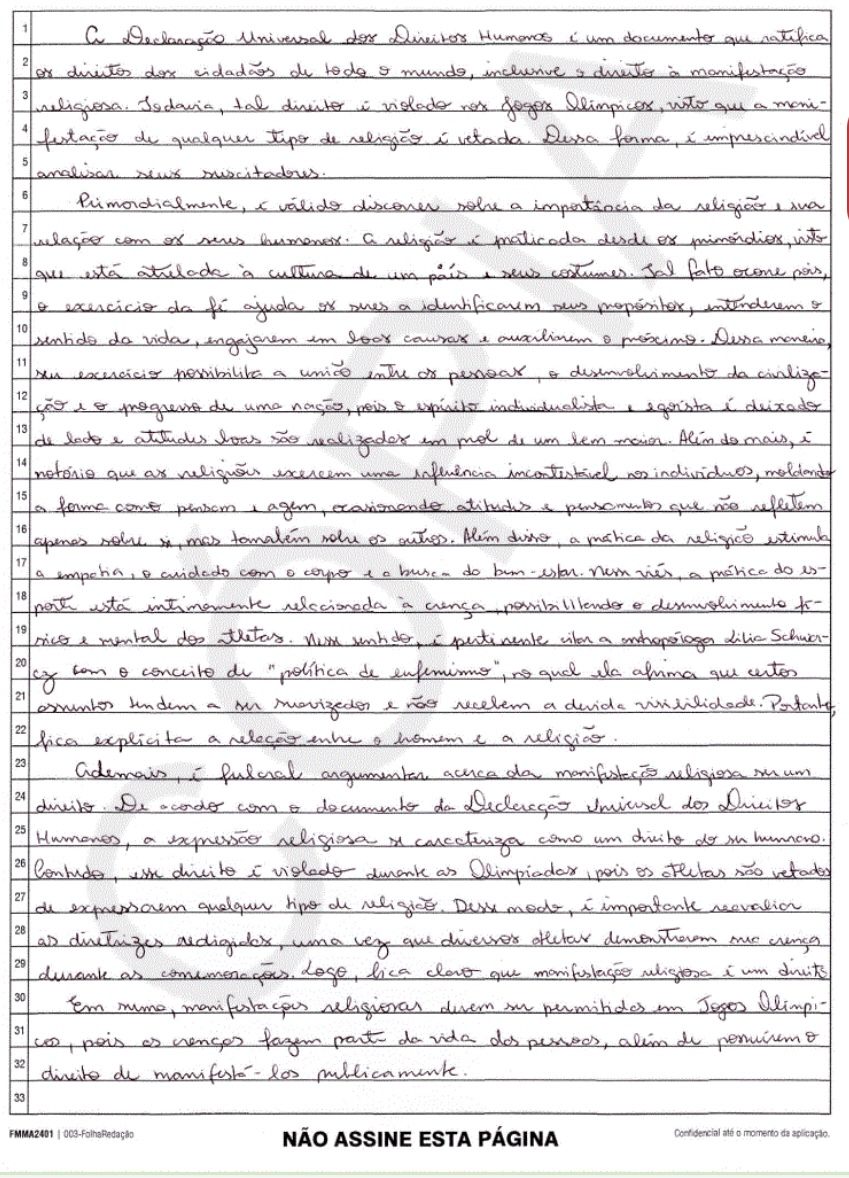 1 A Declaração Universal dos Direitos Humanos é um documento que ratifica
2 os direitos dos cidadãos de todo o mundo, inclusive o direito à manifestação
3 religiosa. Todavia, tal direito é violado nos Jogos Olímpicos, visto que a mani-
4 festação de qualquer tipo de religião é vetada. Dessa forma, é imprescindível
5 analisar seus suscitadores.
6 Primordialmente, é válido discorrer sobre a importância da religião e sua
7 relação com os seres humanos. A religião é praticada desde os primórdios, visto
8 que está atrelada à cultura de um país e seus costumes. Tal fato ocorre pois,
9 o exercício da fé ajuda os seres a identificarem seus propósitos, entenderem o
10 sentido da vida, engajarem em boas causas e auxiliarem o próximo. Dessa maneira,
11 seu exercício possibilita a união entre as pessoas, o desenvolvimento da civiliza-
12 ção e o progresso de uma nação, pois o espírito individualista e egoísta é deixado
13 de lado e atitudes boas são realizadas em prol de um bem maior. Além do mais, é
14 notório que as religiões exercem uma inferência incontestável nos indivíduos, moldando
15 a forma como pensam e agem, ocasionando atitudes e pensamentos que não refletem
16 apenas sobre si, mas também sobre os outros. Além disso, a prática da religião estimula
17 a empatia, o cuidado com o corpo e a busca do bem-estar. Nesse viés, a prática do es-
18 porte está intimamente relacionada à crença, possibilitando o desenvolvimento fí-
19 sico e mental dos atletas. Nesse sentido, é pertinente citar a antropóloga Lilia Schwar-
20 cz com o conceito de "política de eufemismo", no qual ela afirma que certos
21 assuntos tendem a ser suavizados e não recebem a devida visibilidade. Portanto,
22 fica explícita a relação entre o homem e a religião.
23 Ademais, é fulcral argumentar acerca da manifestação religiosa ser um
24 direito. De acordo com o documento da Declaração Universal dos Direitos
25 Humanos, a expressão religiosa se caracteriza como um direito do ser humano.
26 Contudo, esse direito é violado durante as Olimpíadas, pois os atletas são vetados
27 de expressarem qualquer tipo de religião. Desse modo, é importante reavaliar
28 as diretrizes redigidas, uma vez que diversos atletas demonstraram sua crença
29 durante as comemorações. Logo, fica claro que manifestação religiosa é um direito
30 Em suma, manifestações religiosas devem ser permitidas em Jogos Olímpi-
31 cos, pois as crenças fazem parte da vida das pessoas, além de possuírem o
32 direito de manifestá-las publicamente.
33
CÓPIA
FMMA2401 | 003-FolhaRedação
NÃO ASSINE ESTA PÁGINA
Confidencial até o momento da aplicação.